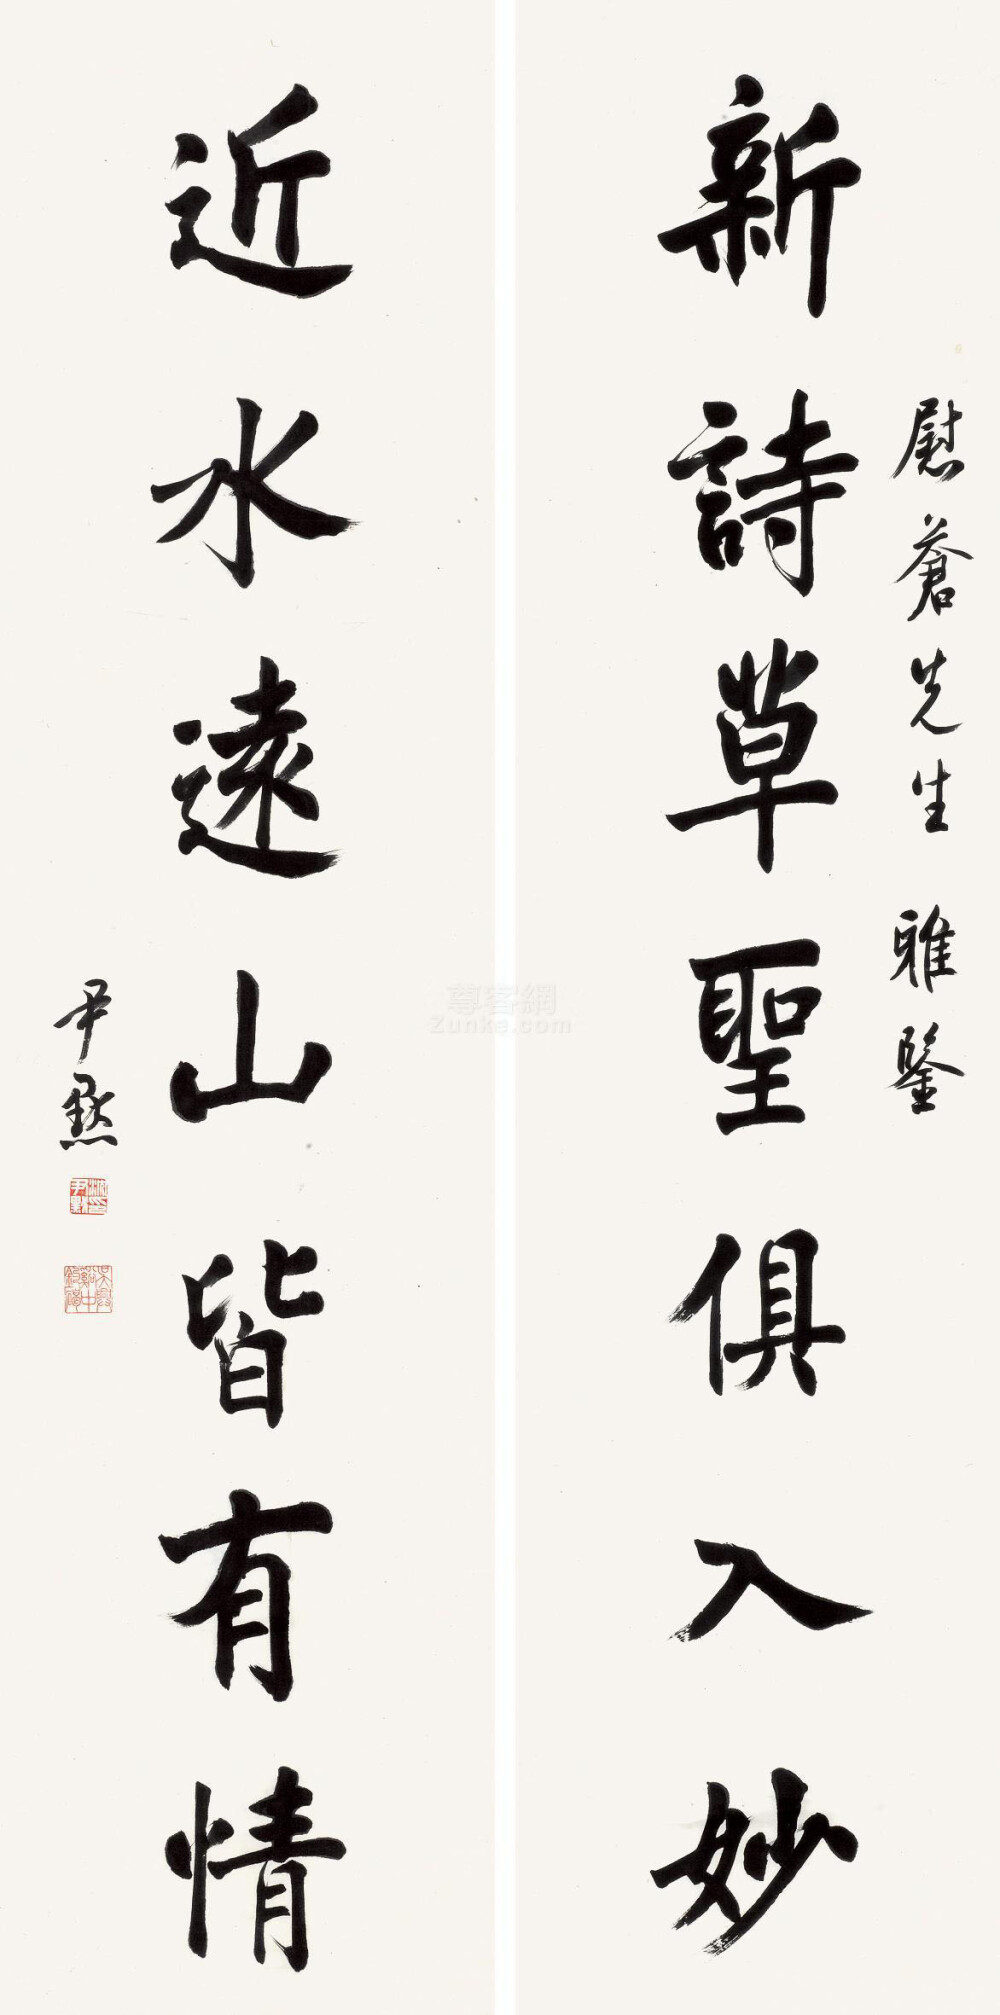 慰蒼先生 雅鑒
新詩草聖俱入妙
近水遠山皆有情
尹默
尊客網
Zunke.com